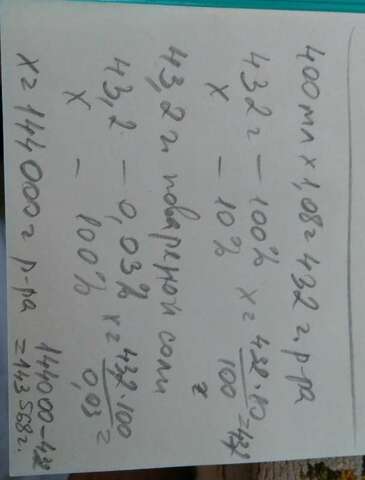 400 мл × 1,08 = 432 г. р-ра
432 г — 100%
x — 10%
x = 432·10 / 100 = 43,2
43,2 г. поваренной соли
43,2 — 0,03%
x — 100%
x = 43,2·100 / 0,03 =
x = 144000 г р-ра
144000 –
= 143568 г.